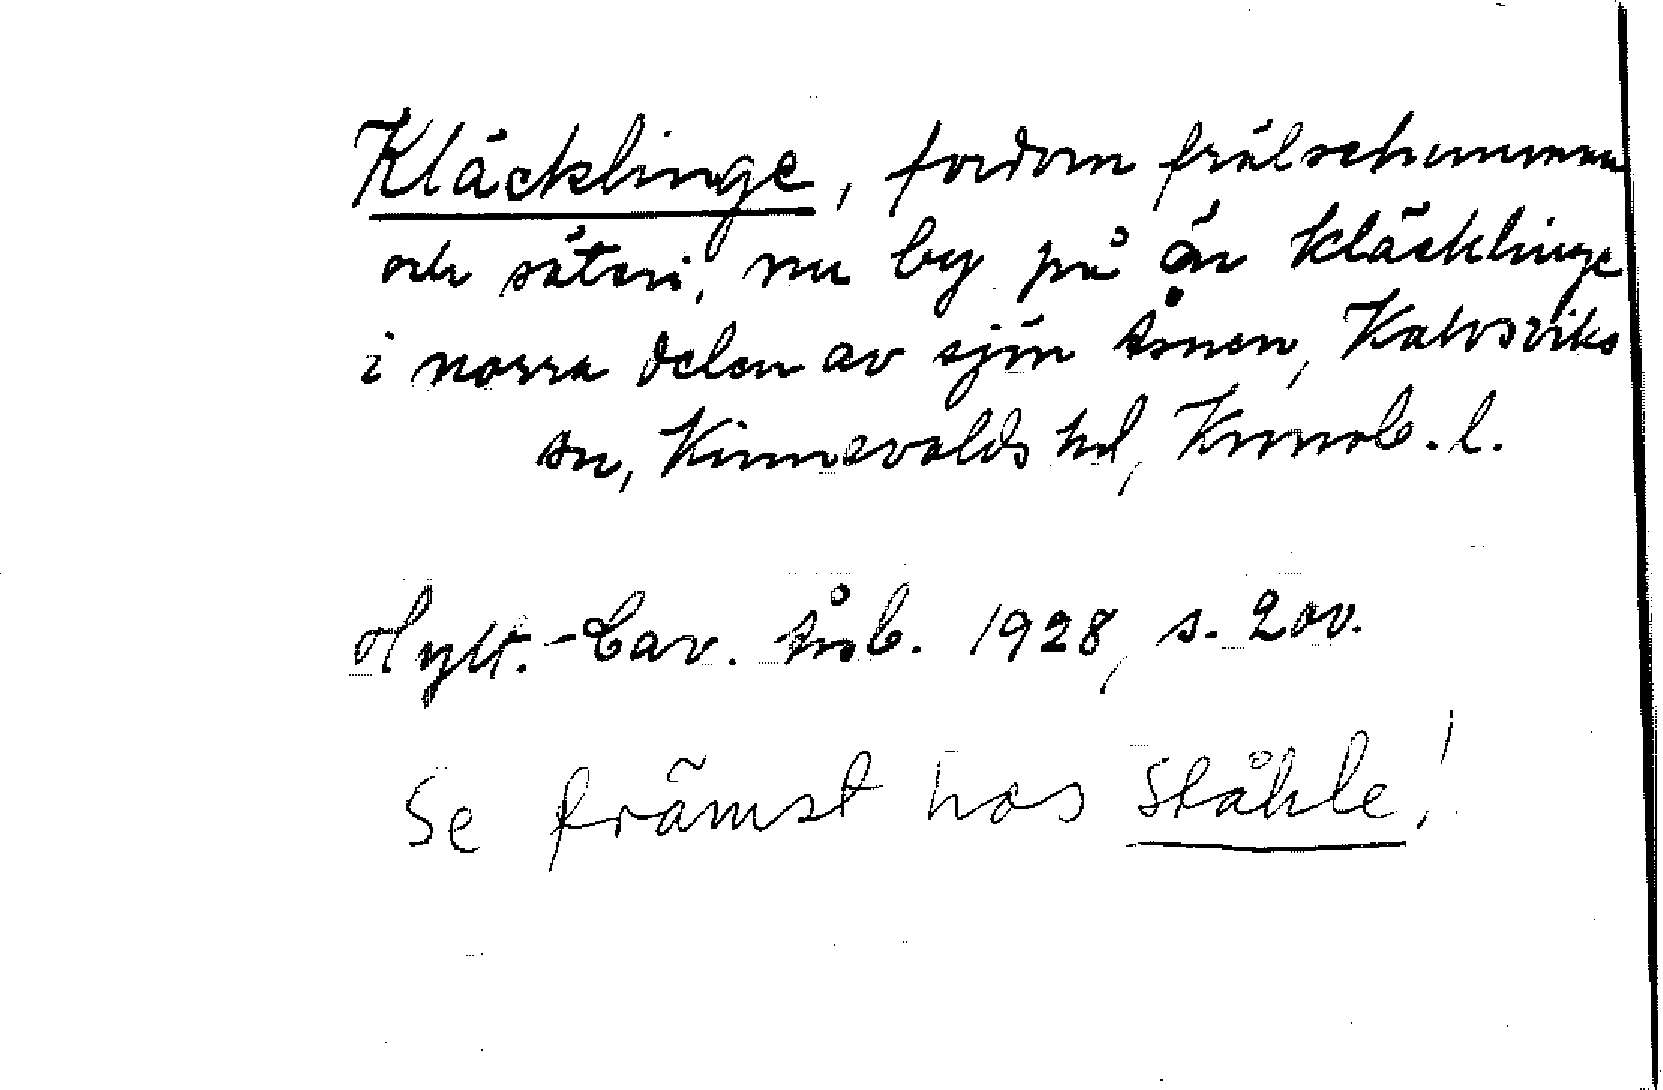 Kläcklinge, fordom frälsehemman
och säteri, nu by på ön Kläcklinge
i norra delen av sjön Åsnen, Kalvsviks
sn, Kinnevalds hd, Kronob. l.
Hylt.-Cav. årsb. 1928, s. 20 o.
Se främst hos Ståhle!